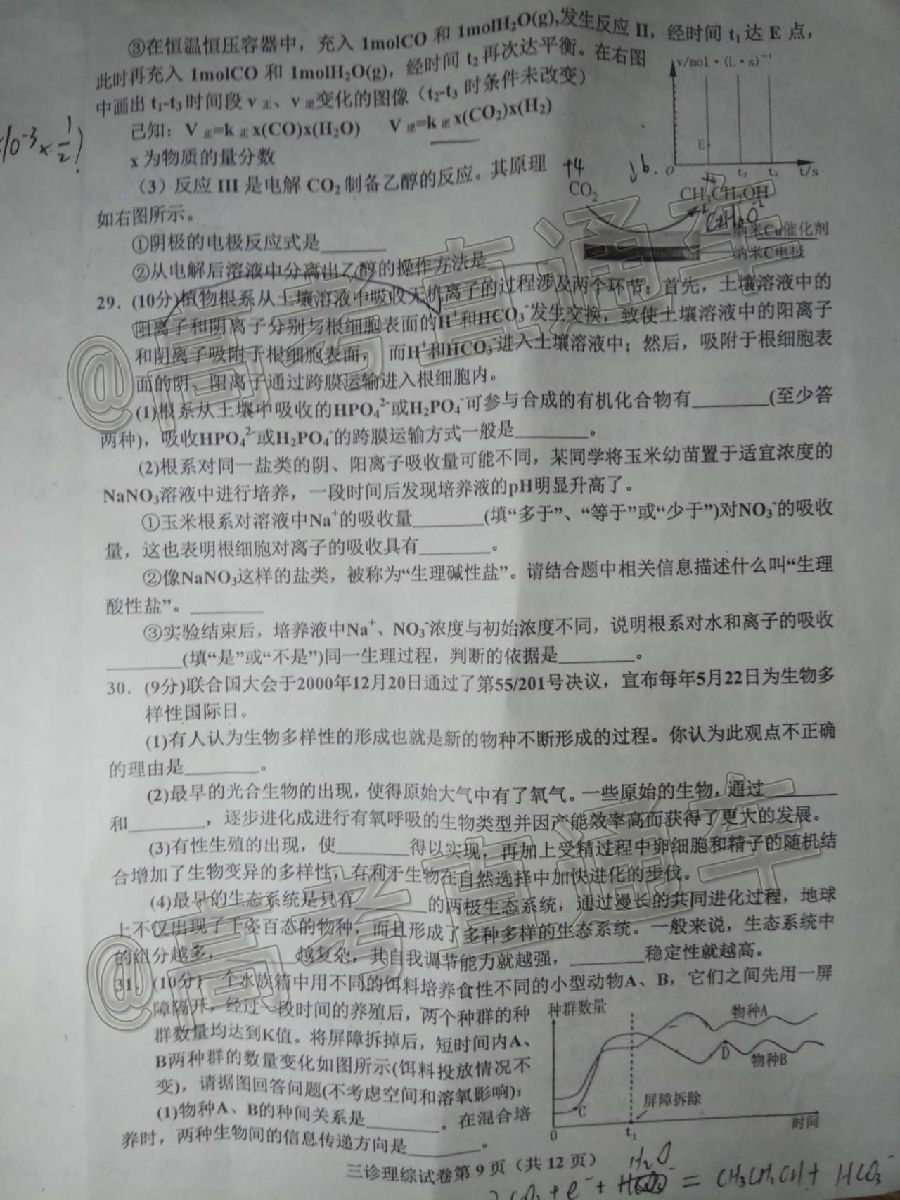 ③在恒温恒压容器中，充入 1molCO 和 1molH₂O(g),发生反应 II，经时间 t₁达 E 点，
此时再充入 1molCO 和 1molH₂O(g)，经时间 t₂再次达平衡。在右图
中画出 t₁-t₃时间段 v 正、v 逆变化的图像（t₂-t₃ 时条件未改变）
v/mol·(L·s)⁻¹
E
O
t₂
t/s
10⁻³×1/2
己知：V 正=k 正 x(CO)x(H₂O) V 逆=k 逆 x(CO₂)x(H₂)
x 为物质的量分数
（3）反应 III 是电解 CO₂制备乙醇的反应。其原理
如右图所示。
+4
CO₂
CH₃CH₂OH
纳米Cu催化剂
纳米C电极
①阴极的电极反应式是______
②从电解后溶液中分离出乙醇的操作方法是
29．(10分)植物根系从土壤溶液中吸收无机离子的过程涉及两个环节：首先，土壤溶液中的
阳离子和阴离子分别与根细胞表面的H⁺和HCO₃⁻发生交换，致使土壤溶液中的阳离子
和阴离子吸附于根细胞表面，而H⁺和HCO₃⁻进入土壤溶液中；然后，吸附于根细胞表
面的阴、阳离子通过跨膜运输进入根细胞内。
(1)根系从土壤中吸收的HPO₄²⁻或H₂PO₄⁻可参与合成的有机化合物有______(至少答
两种)，吸收HPO₄²⁻或H₂PO₄⁻的跨膜运输方式一般是______。
(2)根系对同一盐类的阴、阳离子吸收量可能不同，某同学将玉米幼苗置于适宜浓度的
NaNO₃溶液中进行培养，一段时间后发现培养液的pH明显升高了。
①玉米根系对溶液中Na⁺的吸收量______(填“多于”、“等于”或“少于”)对NO₃⁻的吸收
量，这也表明根细胞对离子的吸收具有______。
②像NaNO₃这样的盐类，被称为“生理碱性盐”。请结合题中相关信息描述什么叫“生理
酸性盐”。______
③实验结束后，培养液中Na⁺、NO₃⁻浓度与初始浓度不同，说明根系对水和离子的吸收
______(填“是”或“不是”)同一生理过程，判断的依据是______。
30．(9分)联合国大会于2000年12月20日通过了第55/201号决议，宣布每年5月22日为生物多
样性国际日。
(1)有人认为生物多样性的形成也就是新的物种不断形成的过程。你认为此观点不正确
的理由是______。
(2)最早的光合生物的出现，使得原始大气中有了氧气。一些原始的生物，通过______
和______，逐步进化成进行有氧呼吸的生物类型并因产能效率高而获得了更大的发展。
(3)有性生殖的出现，使______得以实现，再加上受精过程中卵细胞和精子的随机结
合增加了生物变异的多样性，有利于生物在自然选择中加快进化的步伐。
(4)最早的生态系统是只有______的两极生态系统，通过漫长的共同进化过程，地球
上不仅出现了千姿百态的物种，而且形成了多种多样的生态系统。一般来说，生态系统中
的组分越多，______越复杂，其自我调节能力就越强，______稳定性就越高。
31．(10分)一个水族箱中用不同的饵料培养食性不同的小型动物A、B，它们之间先用一屏
障隔开，经过一段时间的养殖后，两个种群的种
群数量均达到K值。将屏障拆掉后，短时间内A、
B两种群的数量变化如图所示(饵料投放情况不
变)，请据图回答问题(不考虑空间和溶氧影响)：
(1)物种A、B的种间关系是______。在混合培
养时，两种生物间的信息传递方向是______。
种群数量
物种A
D
物种B
C
屏障拆除
0
t₁
时间
三诊理综试卷第 9 页（共 12 页）
H₂O
= CH₃CH₂OH + HCO₃⁻
@高考直通车
@高考直通车